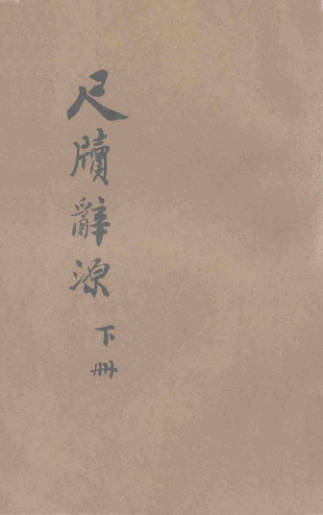 尺牘辭源
下冊